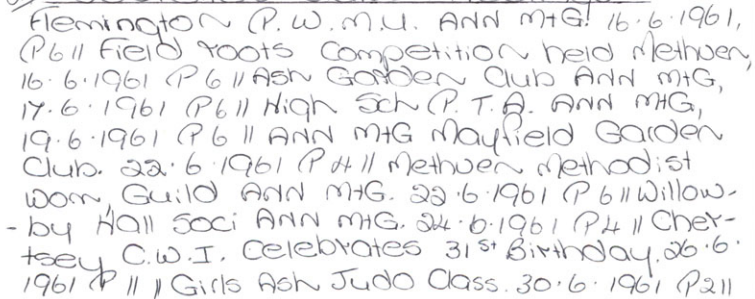 Flemington P.W.M.U. ANN MtG. 16.6.1961,
P6 // Field roots Competition held Methven,
16.6.1961 P6 // Ash Garden Club ANN MtG,
17.6.1961 P6 // High Sch P.T.A. ANN MtG,
19.6.1961 P6 // ANN MtG Mayfield Garden
Club. 22.6.1961 P4 // Methven Methodist
wom, Guild ANN MtG. 22.6.1961 P6 // Willow-
-by Hall Soci ANN MtG. 24.6.1961 P4 // Cher-
tsey C.W.I. Celebrates 31st Birthday. 26.6.
1961 P11 // Girls Ash Judo Class. 30.6.1961 P2 //